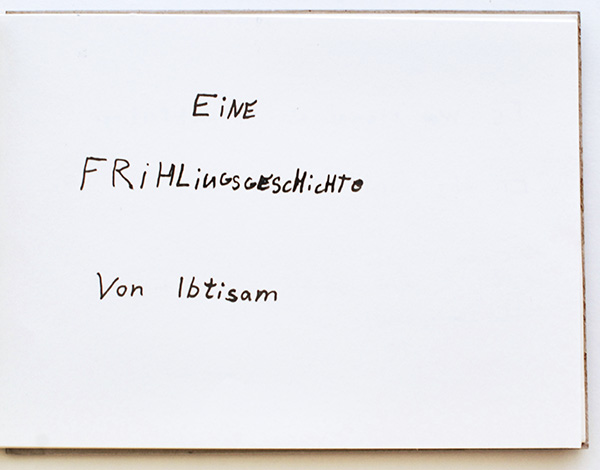 EiNE
FRiHLiNGSGESCHiCHTe
Von Ibtisam